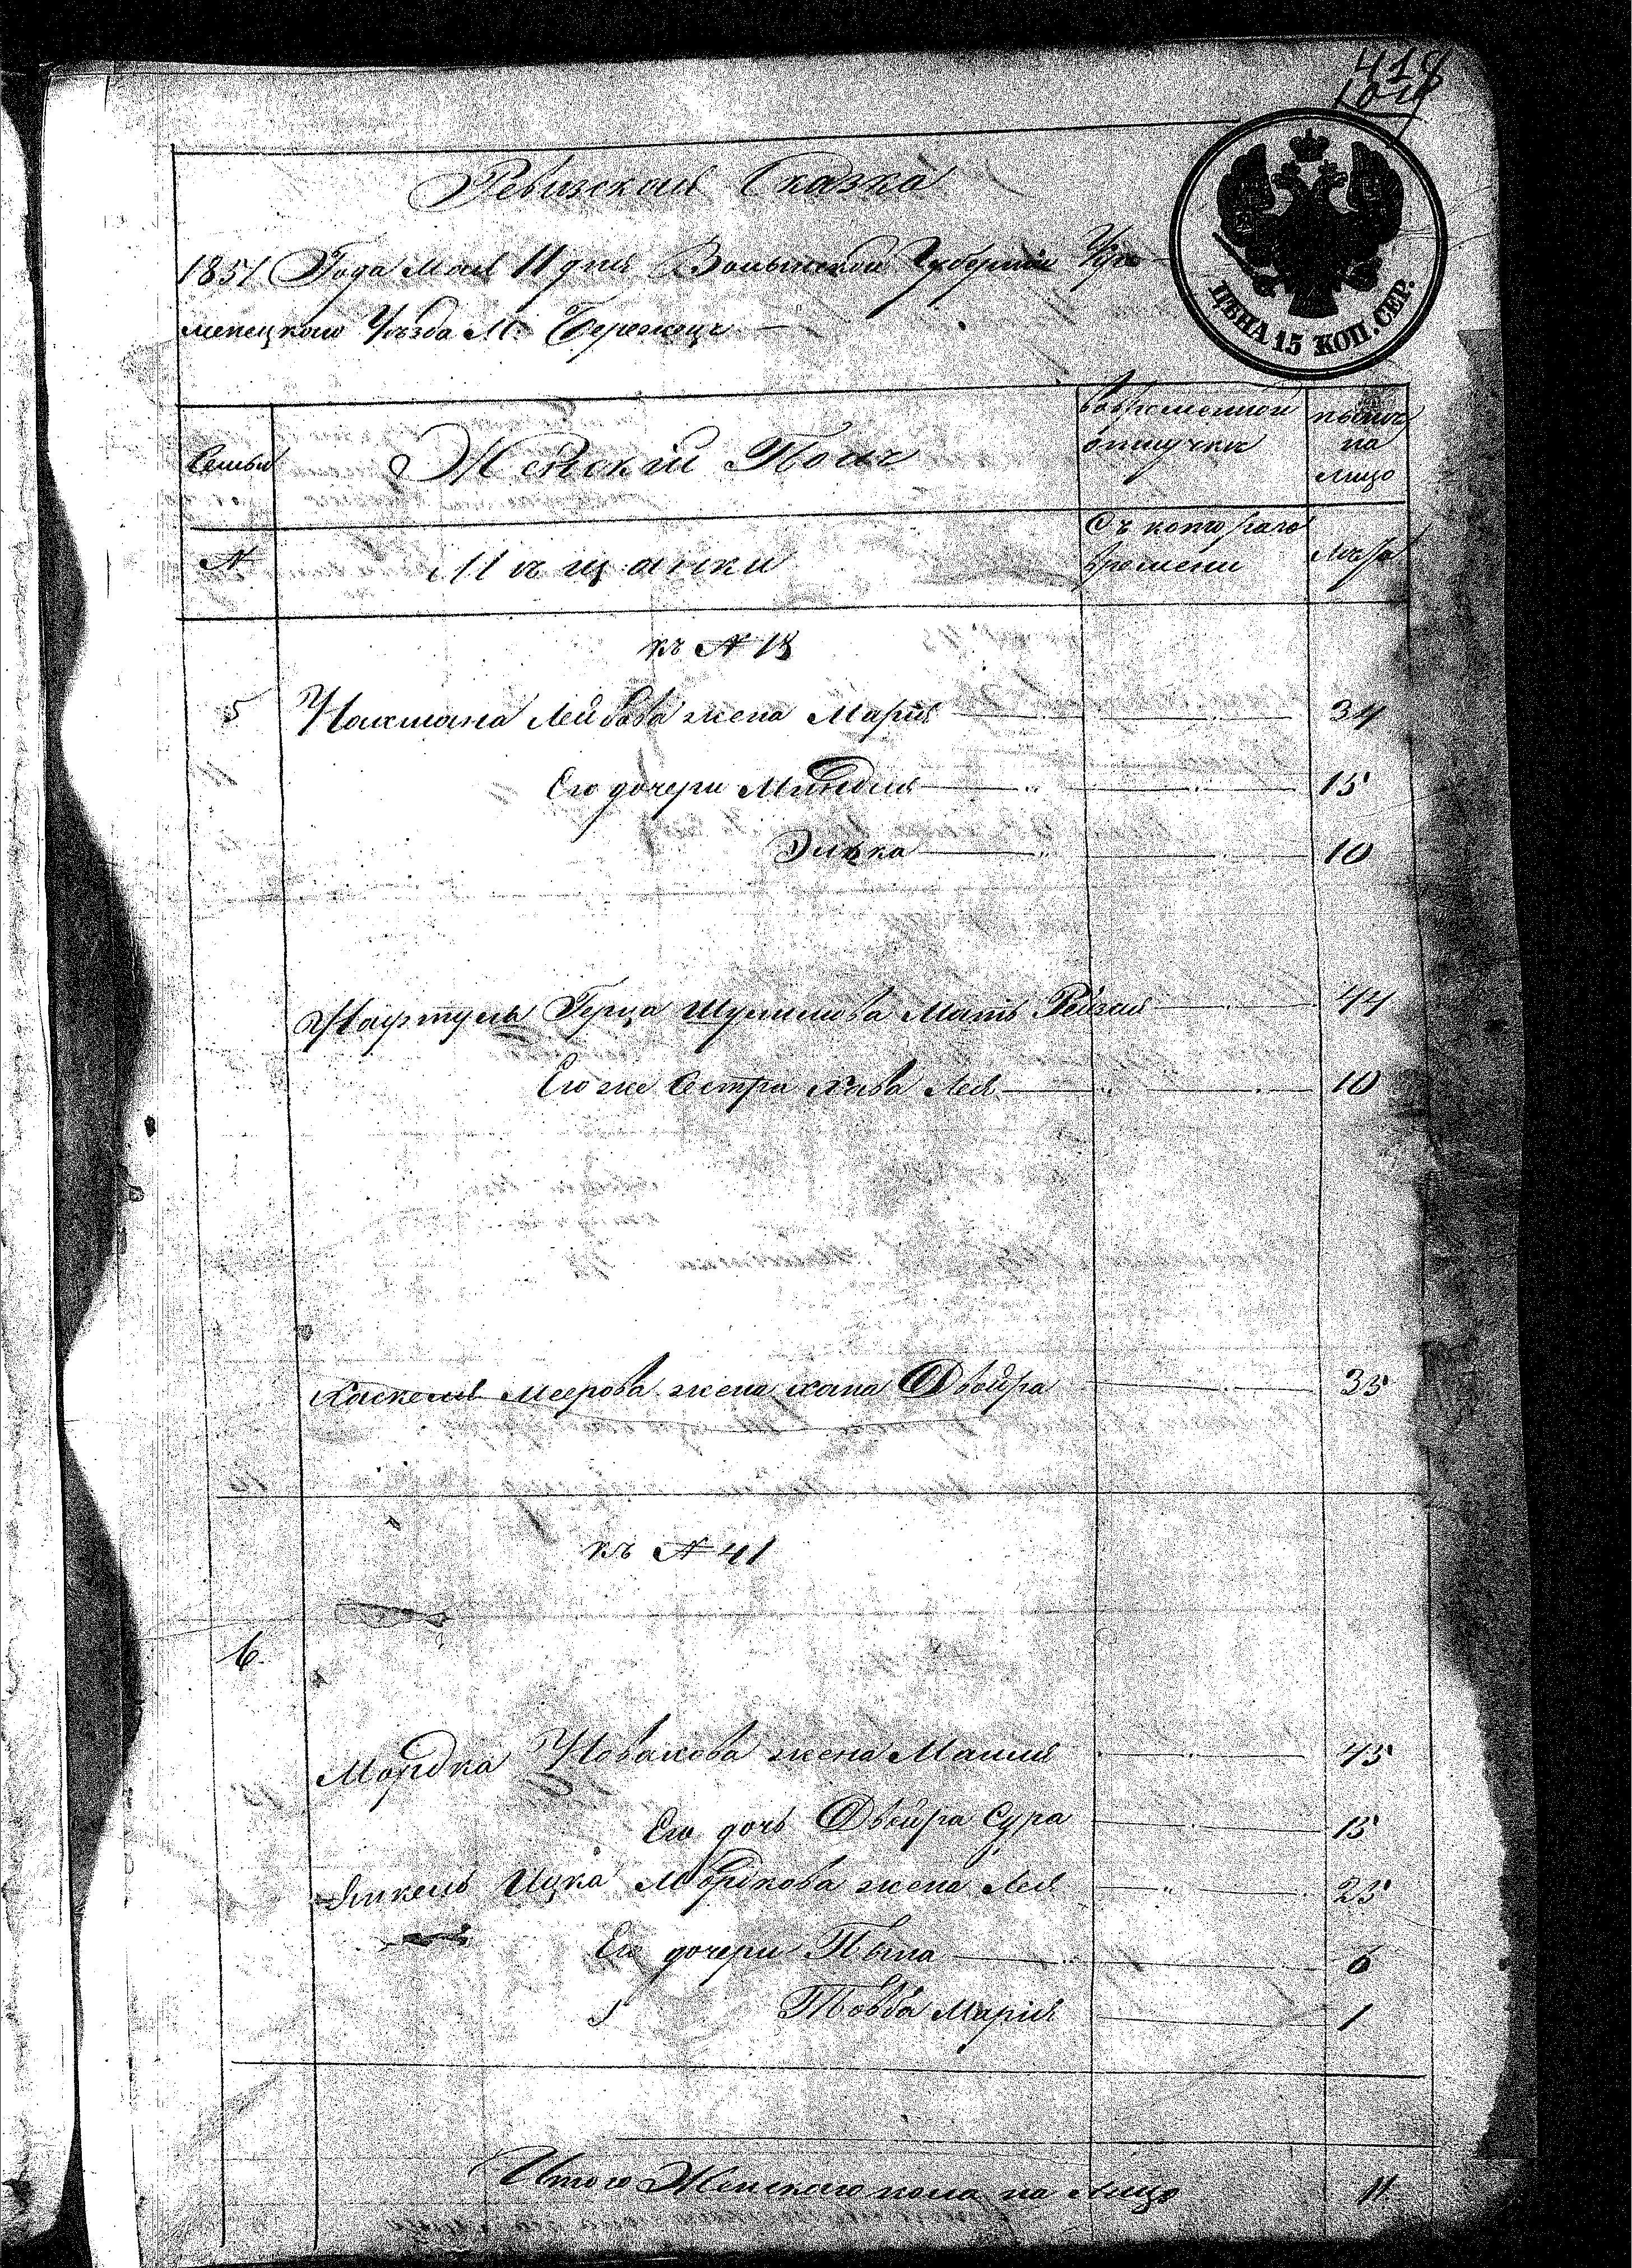 418
Ревизская Сказка
1851 Года Мая 11 дня Волынской Губернии Кре-
менецкого Уѣзда М. Бережецъ
ЦѢНА 15 КОП. СЕР.
Семьи
Женский Полъ
Во временной отлучки
нынѣ на лицо
N
Мѣщанки
Съ которого времени
Лѣта
къ N 18
5 Нахмана Лейбова жена Мария 34
Его дочери Миндля 15
Эпька 10
Герца Шулимова Мать Ревзия 44
Его же Сестра Хива Лея 10
Хаскель Меерова жена Хана Двойра 35
къ N 41
6
Мордка Новакова жена Маля 45
Его дочь Двейра Сура 15
Янкель Ицка Мордкова жена Лея 25
Его дочери Пыпа 6
Товба Мария 1
Итого Женского пола на лицо 11